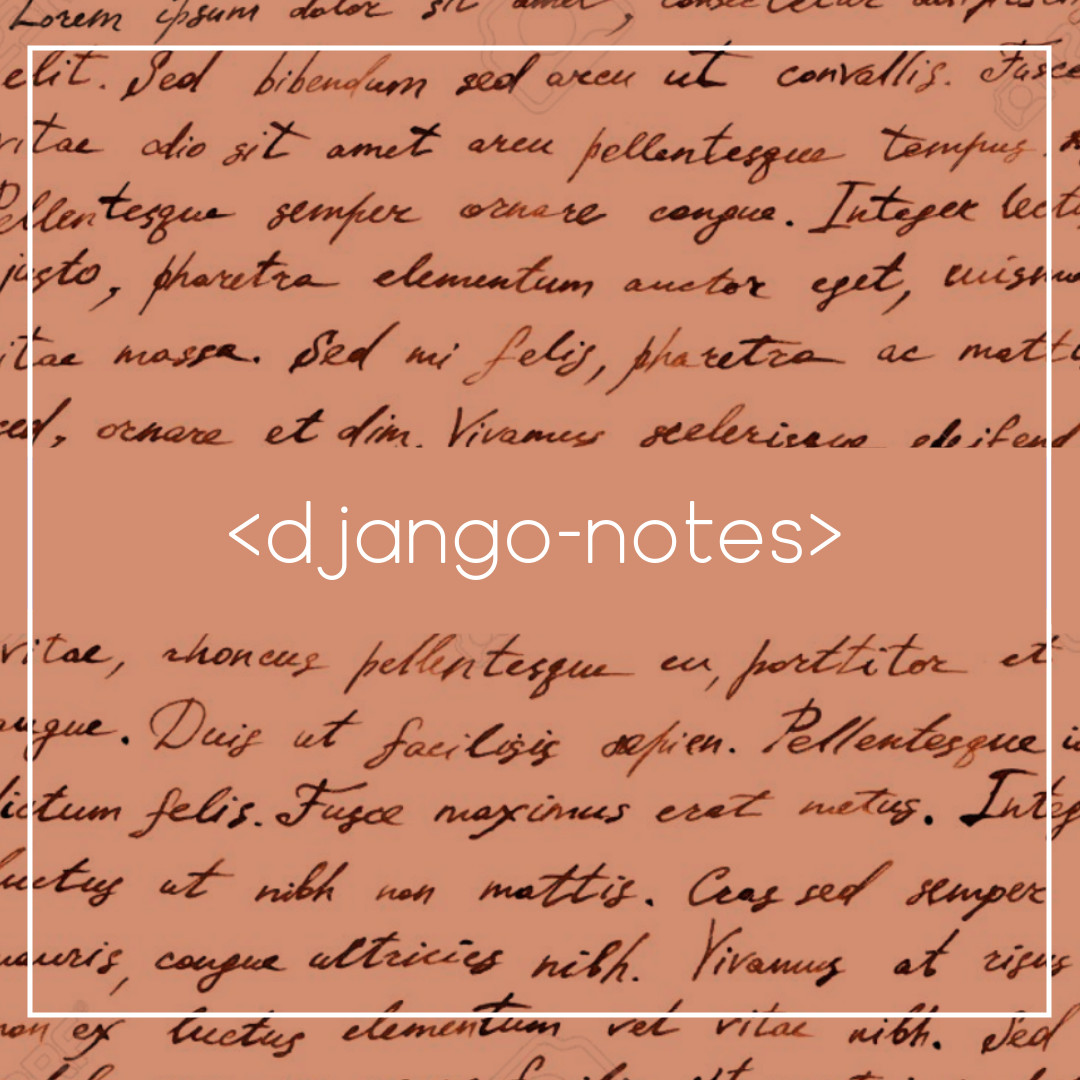 Lorem ipsum dolor sit amet, consectetur
elit. Sed bibendum sed arcu ut convallis. Fusce
vitae odio sit amet arcu pellentesque tempus.
Pellentesque semper ornare congue. Integer lectu
justo, pharetra elementum auctor eget, euismo
itae massa. Sed mi felis, pharetra ac matti
sed, ornare et dim. Vivamus scelerisque eleifend
<django-notes>
vitae, rhoncus pellentesque eu, porttitor et
augue. Duis ut facilisis sapien. Pellentesque
dictum felis. Fusce maximus erat metus. Integ
luctus ut nibh non mattis. Cras sed semper
mauris, congue ultricies nibh. Vivamus at risus
non ex luctus elementum vel vitae nibh. Sed